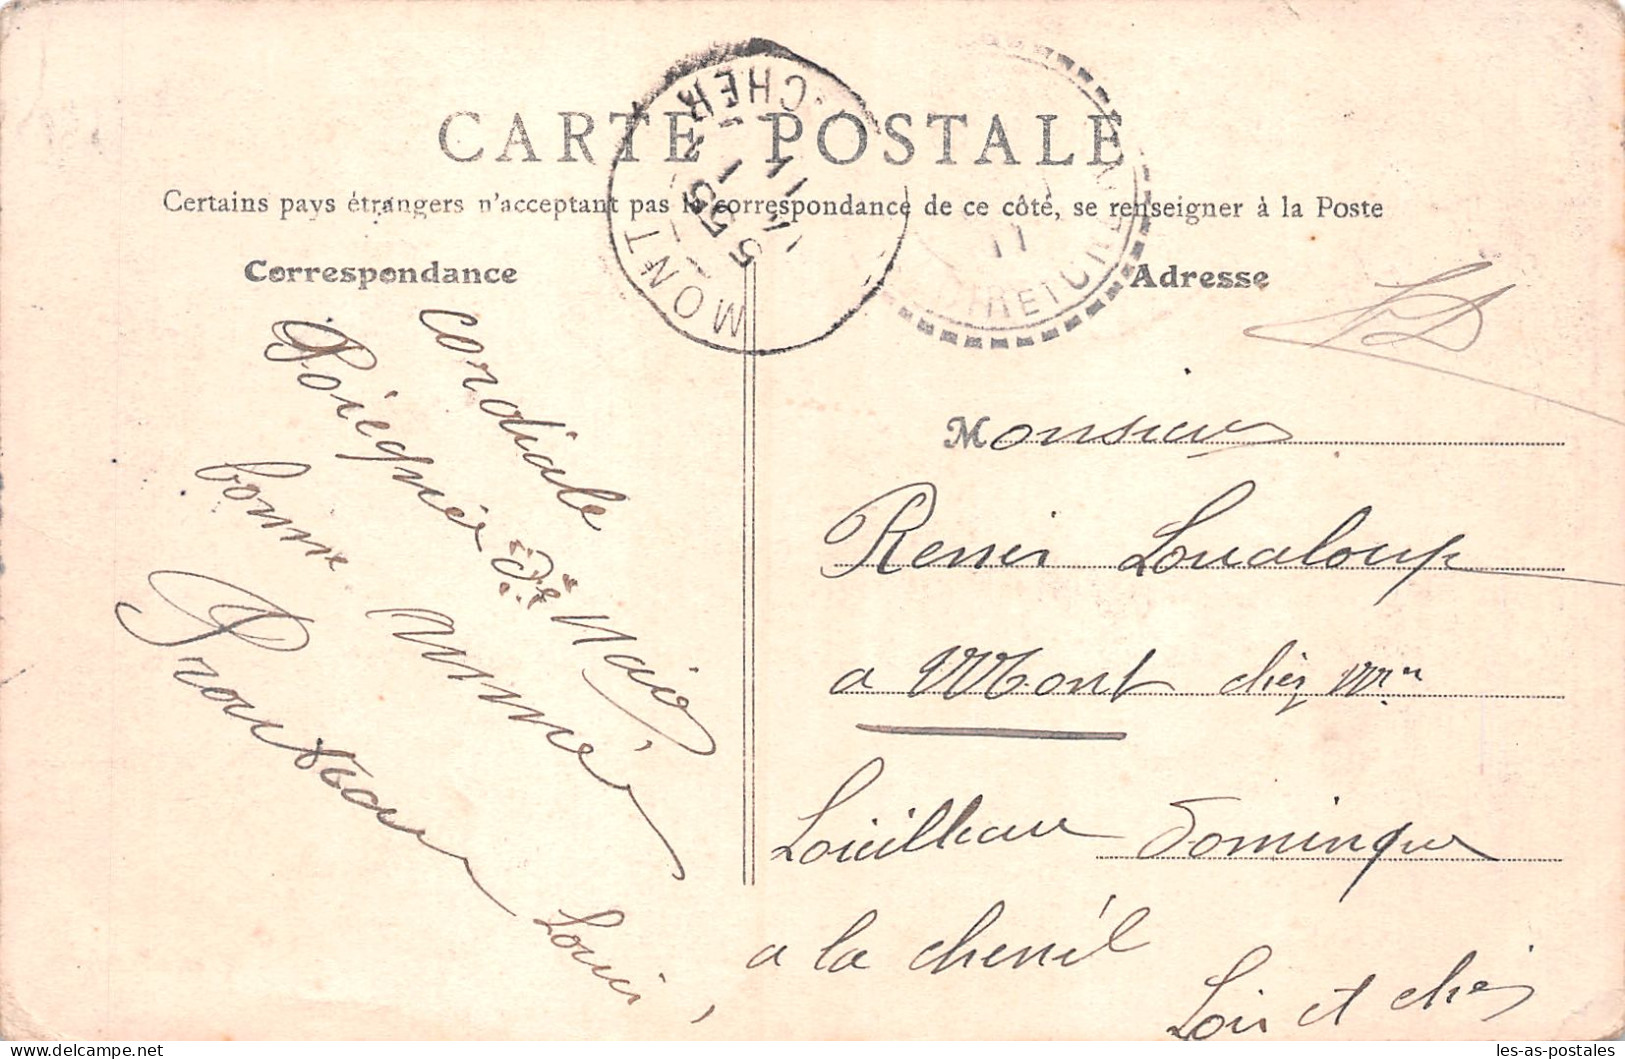 CARTE POSTALE
Certains pays étrangers n'acceptent pas la correspondance de ce côté, se renseigner à la Poste
Correspondance
Adresse
MONT CHER
11
cordiale
Poignée de Main
bonne Année
Louis
Monsieur
René Loualoup
a Mont chez Mr
Dominque
a la chenil
Loir et cher
les-as-postales